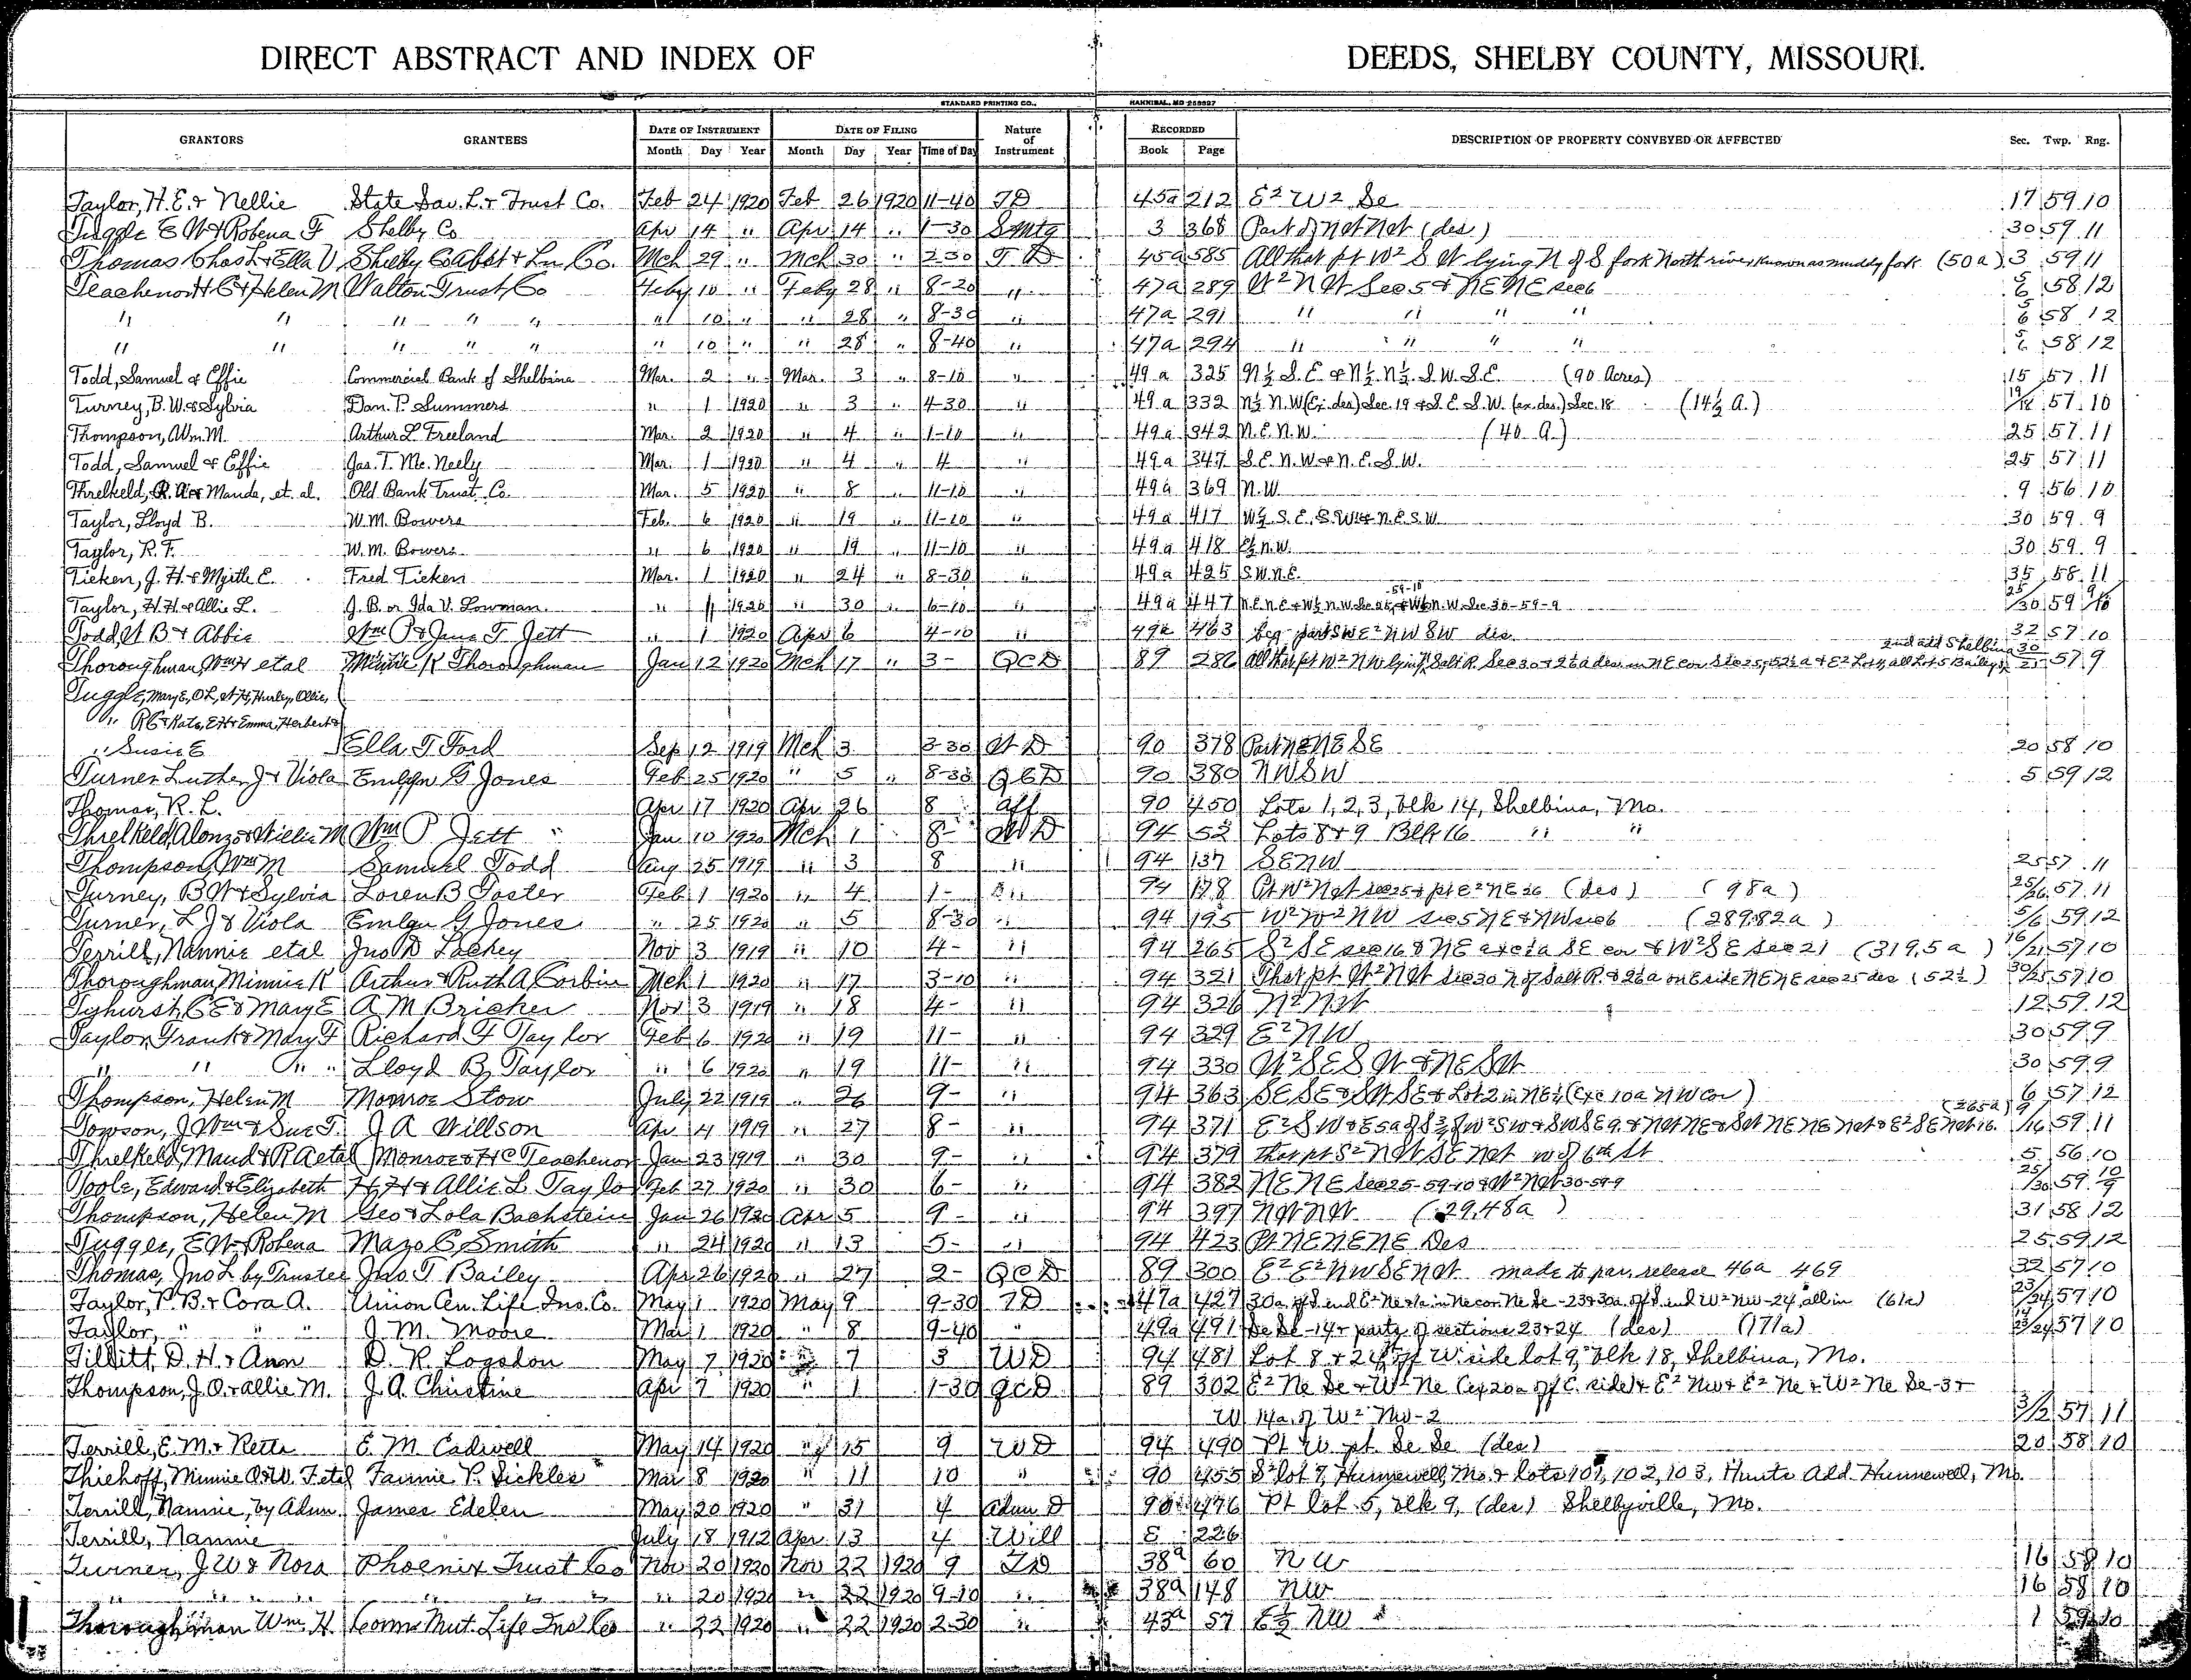 DIRECT ABSTRACT AND INDEX OF DEEDS, SHELBY COUNTY, MISSOURI.
STANDARD PRINTING CO., HANNIBAL, MO 258827
GRANTORS GRANTEES DATE OF INSTRUMENT DATE OF FILING Nature of Instrument RECORDED DESCRIPTION OF PROPERTY CONVEYED OR AFFECTED Sec. Twp. Rng.
Month Day Year Month Day Year Time of Day Book Page
Taylor, H. E. & Nellie State Sav. L. & Trust Co. Feb 24 1920 Feb 26 1920 11-40 TD 45a 212 E2 W2 Se 17 59 10
Tuggle E W & Robena F Shelby Co Apr 14 " Apr 14 " 1-30 S Mtg 3 368 Part of NW NW (des) 30 59 11
Thomas Chas L & Ella V Shelby Co Abst & Ln Co. Mch 29 " Mch 30 " 2 30 T D 45a 585 All that pt W2 S W lying N of S fork North river known as muddy fork (50a) 3 59 11
Teachenor H C & Helen M Walton Trust Co Feby 10 " Feby 28 " 8-20 " 47a 289 W2 N W Sec 5 & NE NE sec 6 5/6 58 12
" " " " " " 10 " " 28 " 8-30 " 47a 291 " " " " 5/6 58 12
" " " " " " 10 " " 28 " 8-40 " 47a 294 " " " " 5/6 58 12
Todd, Samuel & Effie Commercial Bank of Shelbina Mar. 2 " Mar. 3 " 8-10 " 49a 325 N½ S. E. & N½ N½ S. W. S. E. (90 Acres) 15 57 11
Turney, B. W. & Sylvia Dan. P. Summers " 1 1920 " 3 " 4-30 " 49a 332 N½ N. W (Ex. des) Sec. 19 & S. E. S. W. (ex. des.) Sec. 18 (14½ A.) 19/18 57 10
Thompson, Wm. M. Arthur L. Freeland Mar. 2 1920 " 4 " 1-10 " 49a 342 N. E. N. W. (40 A.) 25 57 11
Todd, Samuel & Effie Jas. T. Mc. Neely Mar. 1 1920 " 4 " 4 " 49a 347 S. E. N. W & N. E. S. W. 25 57 11
Threlkeld, R. A. & Maude, et. al. Old Bank Trust Co. Mar. 5 1920 " 8 " 11-10 " 49a 369 N. W. 9 56 10
Taylor, Lloyd B. W. M. Bowers Feb. 6 1920 " 19 " 11-10 " 49a 417 W½ S. E. S. W. & N. E. S. W. 30 59 9
Taylor, R. F. W. M. Bowers " 6 1920 " 19 " 11-10 " 49a 418 E½ N. W. 30 59 9
Tieken, J. H. & Myrtle E. Fred Tieken Mar. 1 1920 " 24 " 8-30 " 49a 425 S. W. N. E. 35 58 11
Taylor, H. H. & Allie L. J. B. or Ida V. Lowman " 1 1920 " 30 " 6-10 " 49a 447 N. E. N. E & W½ N. W. Sec 25, 59-10 & W½ N. W. Sec 30-59-9 25/30 59 9/10
Todd, W B & Abbie Wm P & Jane T. Jett " 1 1920 Apr 6 4-10 " 49a 463 beg part SW E2 NW SW des. 32 57 10
Thoroughman, Wm H etal Minnie K Thoroughman Jan 12 1920 Mch 17 " 3- QCD 89 286 All that pt W2 NW lying N Salt R. Sec 30 & 2½a des in NE cor Sec 25, 52½a & E2 Lot 4, all Lot 5 Bailey's 2nd add Shelbina 30/25 57 9
Tuggle, Mary E, O L, W H, Hurley, Ollie,
" R C & Kate, E H & Emma, Herbert &
" Susie E Ella T Ford Sep 12 1919 Mch 3 3-30 W D 90 378 Part NE NE SE 20 58 10
Turner Luther J & Viola Emlyn G Jones Feb 25 1920 " 5 " 8-30 QCD 90 380 NW SW 5 59 12
Thomas, R. L. Apr 17 1920 Apr 26 8 Aff 90 450 Lots 1, 2, 3, blk 14, Shelbina, Mo.
Threlkeld, Alonzo & Willie M Wm P Jett Jan 10 1920 Mch 1 8- W D 94 52 Lots 8 & 9 Blk 16 " "
Thompson, Wm M Samuel Todd Aug 25 1919 " 3 8 " 94 137 SE NW 25 57 11
Turney, B W & Sylvia Loren B Foster Feb 1 1920 " 4 1- " 94 178 Pt W2 NW sec 25 & pt E2 NE 26 (des) (98a) 25/26 57 11
Turner, L J & Viola Emlyn G Jones " 25 1920 " 5 8-30 " 94 195 W2 W2 NW sec 5 NE & NW sec 6 (289.82a) 5/6 59 12
Terrill, Nannie etal Jno D Lackey Nov 3 1919 " 10 4- " 94 265 S2 SE sec 16 & NE ex 1a SE cor & W2 SE sec 21 (319.5a) 16/21 57 10
Thoroughman Minnie K Arthur & Ruth A Corbin Mch 1 1920 " 17 3-10 " 94 321 That pt W2 NW sec 30 N of Salt R. & 2½a on E side NE NE sec 25 des (52½) 30/25 57 10
Tyhurst, C E & Mary E A M Bricker Nov 3 1919 " 18 4- " 94 326 N2 NW 12 59 12
Taylor, Frank & Mary F Richard F Taylor Feb 6 1920 " 19 11- " 94 329 E2 NW 30 59 9
" " " Lloyd B Taylor " 6 1920 " 19 11- " 94 330 W2 SE S W & NE SW 30 59 9
Thompson, Helen M Monroe Stow July 22 1919 " 26 9- " 94 363 SE SE & SW SE & Lot 2 in NE¼ (Exc 10a NW cor) 6 57 12
Towson, J Wm & Sue T. J A Willson Apr 4 1919 " 27 8- " 94 371 E2 SW & E 5a of S ⅔ of W2 SW & SW SE 9. & NW NE & SW NE NE NW & E2 SE NW 16. (265a) 9/16 59 11
Threlkeld, Maud & R A etal Monroe & H C Teachenor Jan 23 1919 " 30 9- " 94 379 that pt S2 NW SE NW W of 6th St 5 56 10
Toole, Edward & Elizabeth H. H & Allie L Taylo Feb 27 1920 " 30 6- " 94 382 NE NE sec 25-59-10 & W2 NW 30-59-9 25/30 59 10/9
Thompson, Helen M Geo & Lola Bachstein Jan 26 1920 Apr 5 9- " 94 397 NW NW (29.48a) 31 58 12
Tuggle, E W & Robena Mazo C, Smith " 24 1920 " 13 5- " 94 423 Pt NE NE NE Des 25 59 12
Thomas, Jno L by Trustee Jno. T Bailey Apr 26 1920 " 27 2- QCD 89 300 E2 E2 NW SE NW made to par. release 46a 469 32 57 10
Taylor, P. B. & Cora A. Union Cen. Life Ins. Co. May 1 1920 May 9 9-30 TD 47a 427 30a off S end E2 Ne & 1a in Ne cor Ne Se - 23 & 30a off S end W2 NW-24, all in (61a) 23/24 57 10
Taylor, " " " J. M. Moore Mar 1 1920 " 8 9-40 " 49a 491 Se Se -14 & parts of sections 23 & 24 (des) (171a) 14/23/24 57 10
Tillitt, D. H. & Ann D. R. Logsdon May 7 1920 " 7 3 WD 94 481 Lot 8 & 24ft off W side lot 9, blk 18, Shelbina, Mo.
Thompson, J. O. & Allie M. J. A. Christine Apr 7 1920 " 1 1-30 QCD 89 302 E2 Ne Se & W2 Ne (ex 20a off E. side) & E2 Nw & E2 Ne & W2 Ne Se-3 &
W 14a of W2 Nw-2 3/2 57 11
Terrill, E. M. & Retta E. M. Cadwell May 14 1920 " 15 9 WD 94 490 Pt W pt. Se Se (des) 20 58 10
Thiehoff, Minnie O. & W. F etal Fannie P. Sickles Mar 8 1920 " 11 10 " 90 455 S2 lot 7, Hunnewell, Mo. & lots 101, 102, 103, Hunts Add. Hunnewell, Mo.
Terrill, Nannie, by Adm. James Edelen May 20 1920 " 31 4 Adm D 90 476 Pt lot 5, blk 9, (des) Shelbyville, Mo.
Terrill, Nannie July 18 1912 Apr 13 4 Will E 226
Turner, J W & Nora Phoenix Trust Co Nov 20 1920 Nov 22 1920 9 TD 38a 60 N W 16 58 10
" " " " " " " " 20 1920 " 22 1920 9-10 " 38a 148 NW 16 58 10
Thoroughman Wm. H. Conn Mut. Life Ins Co " 22 1920 " 22 1920 2-30 " 43a 57 E½ NW 1 59 10